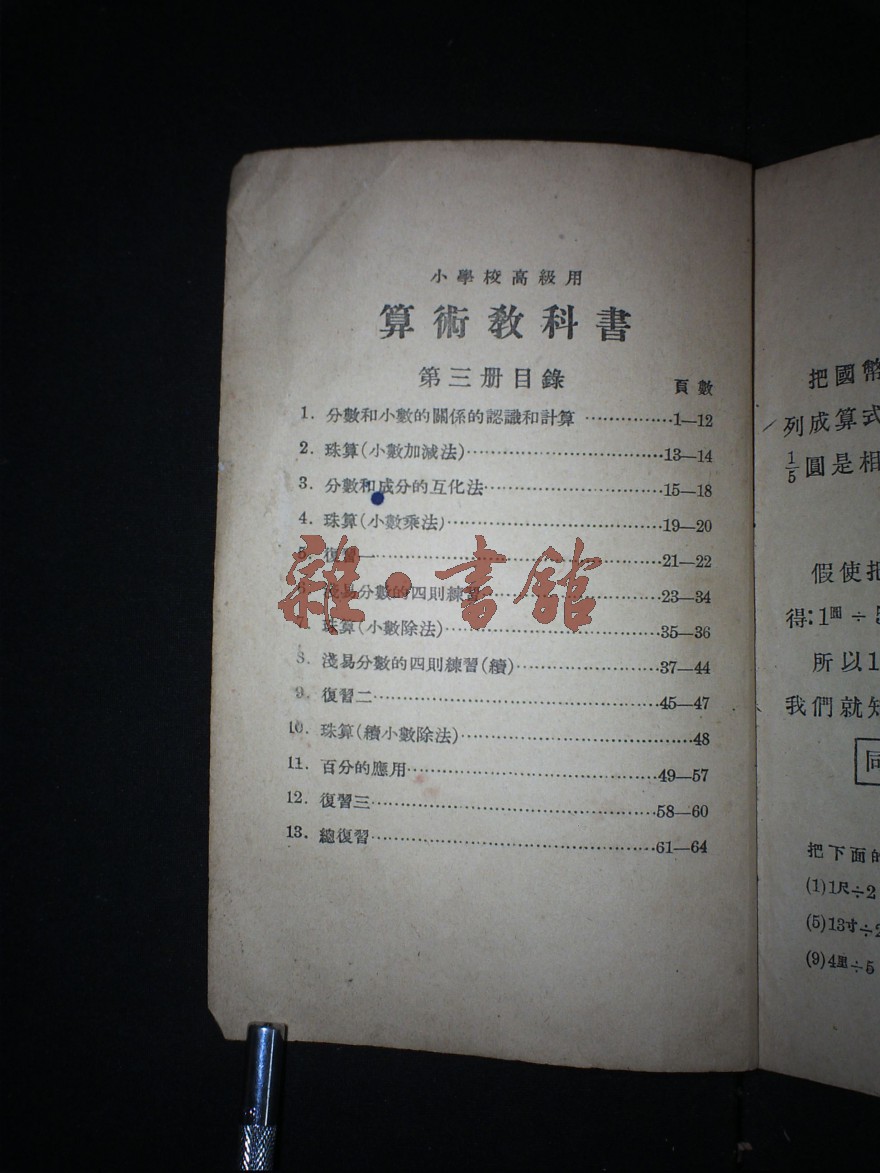 小學校高級用
算術敎科書
第三册目錄
頁數
1. 分數和小數的關係的認識和計算 ……………1—12
2. 珠算(小數加減法)……………………………13—14
3. 分數和成分的互化法…………………………15—18
4. 珠算(小數乘法)………………………………19—20
5. 復習一…………………………………………21—22
6. 淺易分數的四則練習…………………………23—34
7. 珠算(小數除法)………………………………35—36
8. 淺易分數的四則練習(續)……………………37—44
9. 復習二…………………………………………45—47
10. 珠算(續小數除法)……………………………48
11. 百分的應用……………………………………49—57
12. 復習三…………………………………………58—60
13. 總復習…………………………………………61—64
雜·書館
把國幣
列成算式
1/5圓是相
假使把
得:1圓÷5
所以1
我們就知
同
把下面的
(1)1尺÷2
(5)13寸÷2
(9)4里÷5